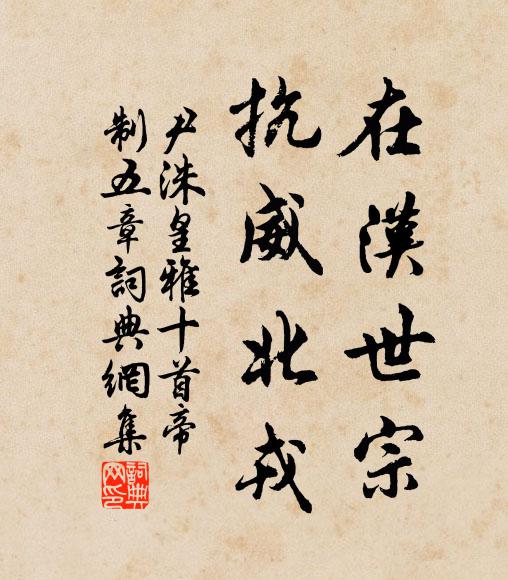 在漢世宗
抗威北戎
尹洙皇雅十首帝
制五章詞典網集
詞典网印